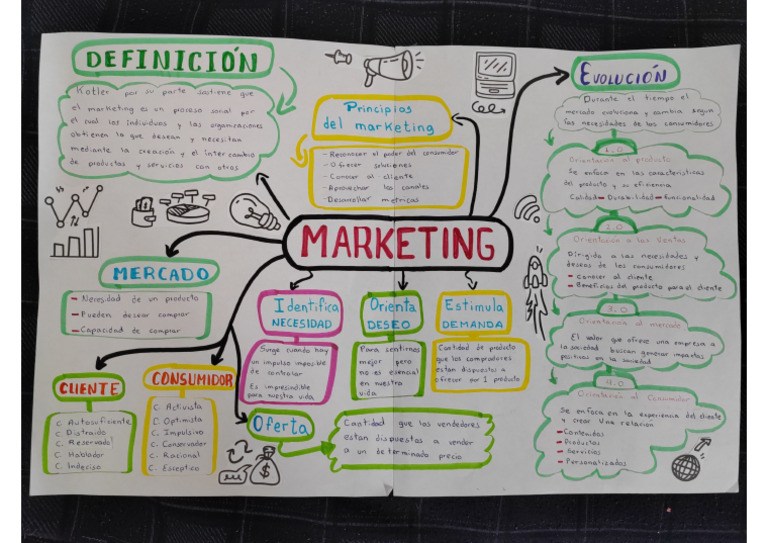 DEFINICIÓN
Kotler por su parte sostiene que
el marketing es un proceso social por
el cual los individuos y las organizaciones
obtienen lo que desean y necesitan
mediante la creación y el intercambio
de productos y servicios con otros
Principios
del marketing
- Reconocer el poder del consumidor
- Ofrecer soluciones
- Conocer al cliente
- Aprovechar los canales
- Desarrollar metricas
EVOLUCIÓN
Durante el tiempo el
mercado evoluciona y cambia según
las necesidades de los consumidores
1.0
Orientación al producto
Se enfoca en las características
del producto y su eficiencia
Calidad - Durabilidad - funcionalidad
2.0
Orientación a las Ventas
Dirigido a las necesidades y
deseos de los consumidores
- Conocer al cliente
- Beneficios del producto para el cliente
3.0
Orientación al mercado
El valor que ofrece una empresa a
la sociedad buscan generar impactos
positivos en la sociedad
4.0
Orientación al Consumidor
Se enfoca en la experiencia del cliente
y crear una relación
- Contenidos
- Productos
- Servicios
- Personalizados
MARKETING
MERCADO
- Necesidad de un producto
- Pueden desear comprar
- Capacidad de comprar
Identifica
NECESIDAD
Surge cuando hay
un impulso imposible
de controlar
Es imprescindible
para nuestra vida
Orienta
DESEO
Para sentirnos
mejor pero
no es esencial
en nuestra
vida
Estimula
DEMANDA
Cantidad de producto
que los compradores
estan dispuestos a
ofrecer por 1 producto
CLIENTE
C. Autosuficiente
C. Distraido
C. Reservado
C. Hablador
C. Indeciso
CONSUMIDOR
C. Activista
C. Optimista
C. Impulsivo
C. Conservador
C. Racional
C. Esceptico
Oferta
Cantidad que los vendedores
estan dispuestos a vender
a un determinado precio
$